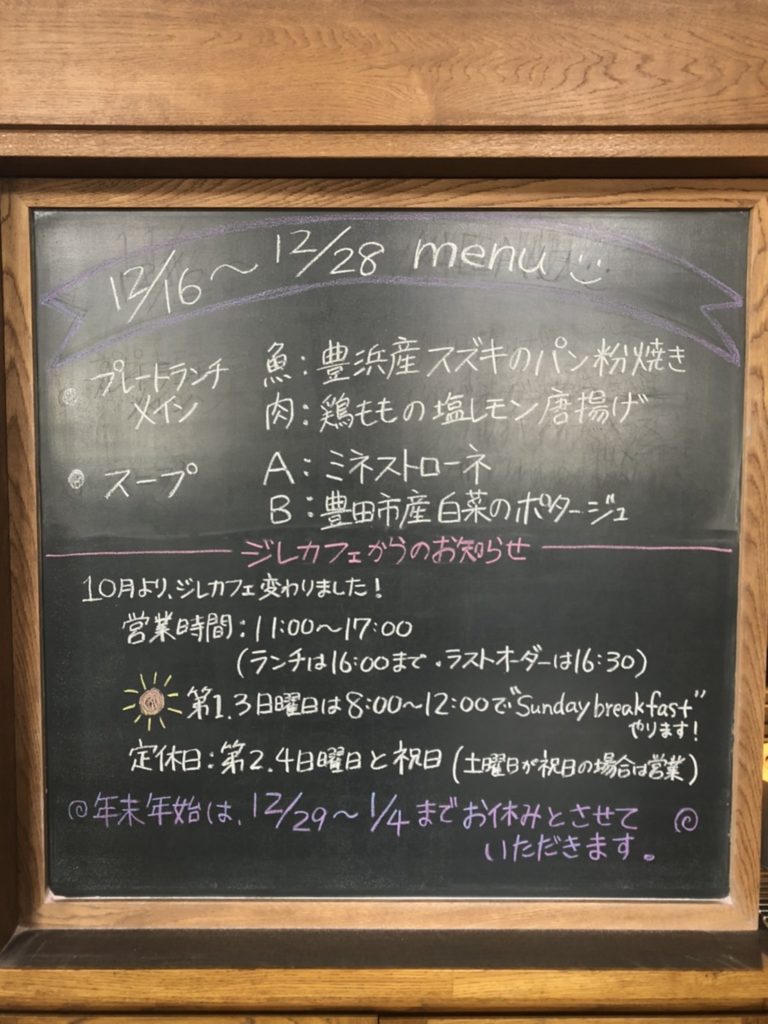 12/16〜12/28 menu
プレートランチ
メイン
魚：豊浜産スズキのパン粉焼き
肉：鶏ももの塩レモン唐揚げ
スープ
A：ミネストローネ
B：豊田市産白菜のポタージュ
ジレカフェからのお知らせ
10月より、ジレカフェ変わりました！
営業時間：11:00〜17:00
（ランチは16:00まで・ラストオーダーは16:30）
第1.3日曜日は8:00〜12:00で"Sunday breakfast"
やります！
定休日：第2.4日曜日と祝日（土曜日が祝日の場合は営業）
年末年始は、12/29〜1/4までお休みとさせて
いただきます。